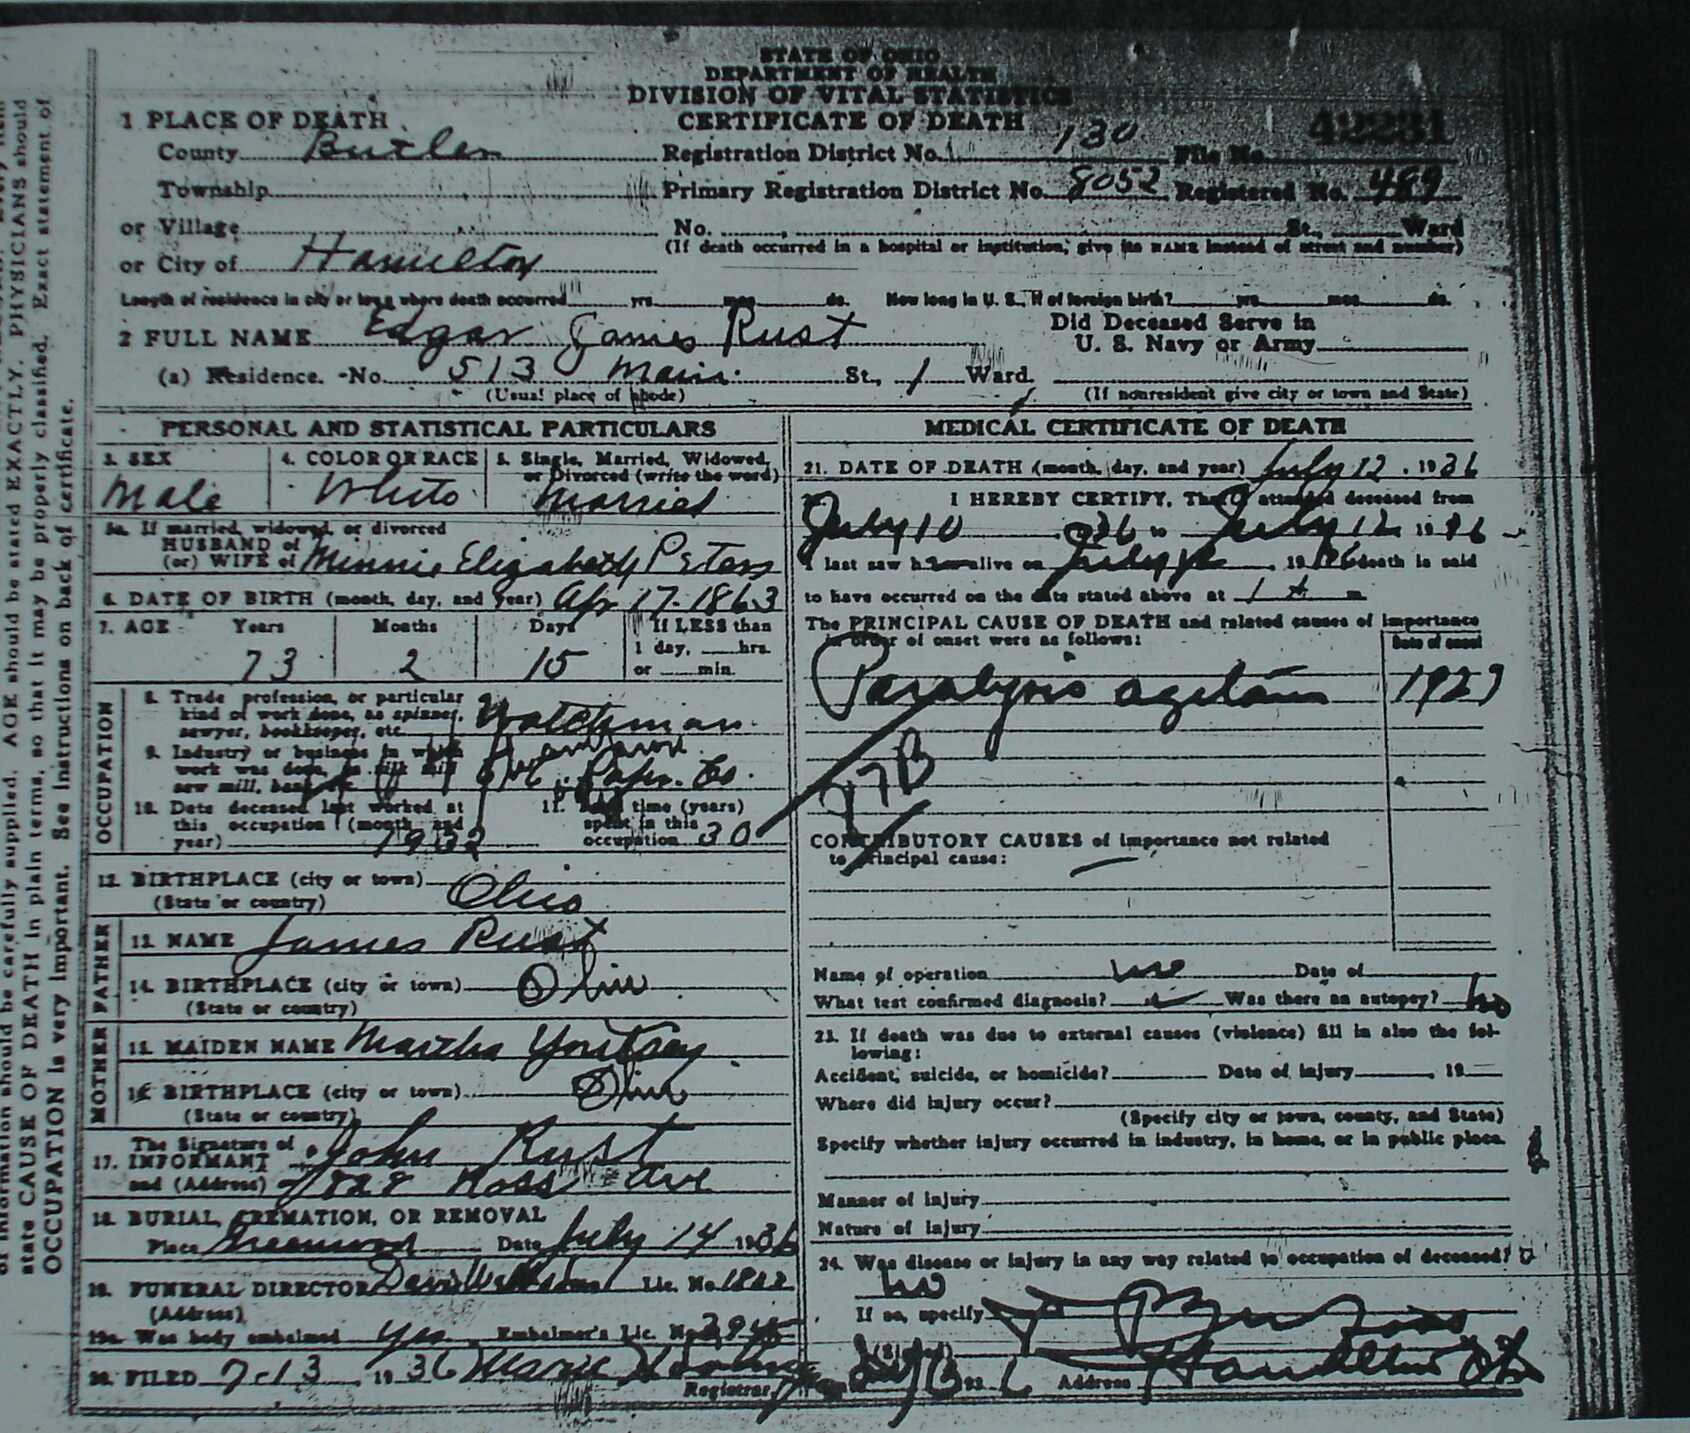 STATE OF OHIO
DEPARTMENT OF HEALTH
DIVISION OF VITAL STATISTICS
CERTIFICATE OF DEATH
1 PLACE OF DEATH
County Butler Registration District No. 130 File No. 42231
Township Primary Registration District No. 8052 Registered No. 489
or Village No. , St., Ward
(If death occurred in a hospital or institution, give its NAME instead of street and number)
or City of Hamilton
Length of residence in city or town where death occurred yrs. mos. ds. How long in U. S., if of foreign birth? yrs. mos. ds.
2 FULL NAME Edgar James Rust
Did Deceased Serve in
U. S. Navy or Army
(a) Residence. No. 513 Main St., 1 Ward.
(Usual place of abode) (If nonresident give city or town and State)
PERSONAL AND STATISTICAL PARTICULARS
3. SEX
Male
4. COLOR OR RACE
White
5. Single, Married, Widowed,
or Divorced (write the word)
Married
5a. If married, widowed, or divorced
HUSBAND of
(or) WIFE of Minnie Elizabeth Peters
6. DATE OF BIRTH (month, day, and year) Apr 17-1863
7. AGE Years Months Days If LESS than
73 2 15 1 day, hrs.
or min.
OCCUPATION
8. Trade profession, or particular
kind of work done, as spinner,
sawyer, bookkeeper, etc. Watchman
9. Industry or business in which
work was done, as silk mill
saw mill, bank, Champion Papr. Co.
10. Date deceased last worked at
this occupation (month and
year) 1932
11. time (years)
spent in this
occupation 30
12. BIRTHPLACE (city or town)
(State or country) Ohio
FATHER
13. NAME James Rust
14. BIRTHPLACE (city or town) Ohio
(State or country)
MOTHER
15. MAIDEN NAME Martha Youtsey
16. BIRTHPLACE (city or town) Ohio
(State or country)
The Signature of
17. INFORMANT John Rust
and (Address) 828 Ross Ave
18. BURIAL, CREMATION, OR REMOVAL
Place Greenwood Date July 14 1936
19. FUNERAL DIRECTOR Lic. No. 1822
(Address)
19a. Was body embalmed Yes Embalmer's Lic. No.
20. FILED 7-13 1936 Marie
Registrar
MEDICAL CERTIFICATE OF DEATH
21. DATE OF DEATH (month, day, and year) July 12, 1936
I HEREBY CERTIFY, That I attended deceased from
July 10 , 1936 to July 12 1936
I last saw h alive on July , 1936 death is said
to have occurred on the date stated above at 1 m
The PRINCIPAL CAUSE OF DEATH and related causes of importance
in order of onset were as follows:
Date of onset
Paralysis agitans 1929
87B
CONTRIBUTORY CAUSES of importance not related
to principal cause:
Name of operation no Date of
What test confirmed diagnosis? Was there an autopsy? no
23. If death was due to external causes (violence) fill in also the fol-
lowing:
Accident, suicide, or homicide? Date of injury , 19
Where did injury occur?
(Specify city or town, county, and State)
Specify whether injury occurred in industry, in home, or in public place.
Manner of injury
Nature of injury
24. Was disease or injury in any way related to occupation of deceased?
no
If so, specify
(Signed)
Address Hamilton O
state CAUSE OF DEATH in plain terms, so that it may be properly classified. Exact statement of
OCCUPATION is very important. See instructions on back of certificate.
of information should be carefully supplied. AGE should be stated EXACTLY. PHYSICIANS should